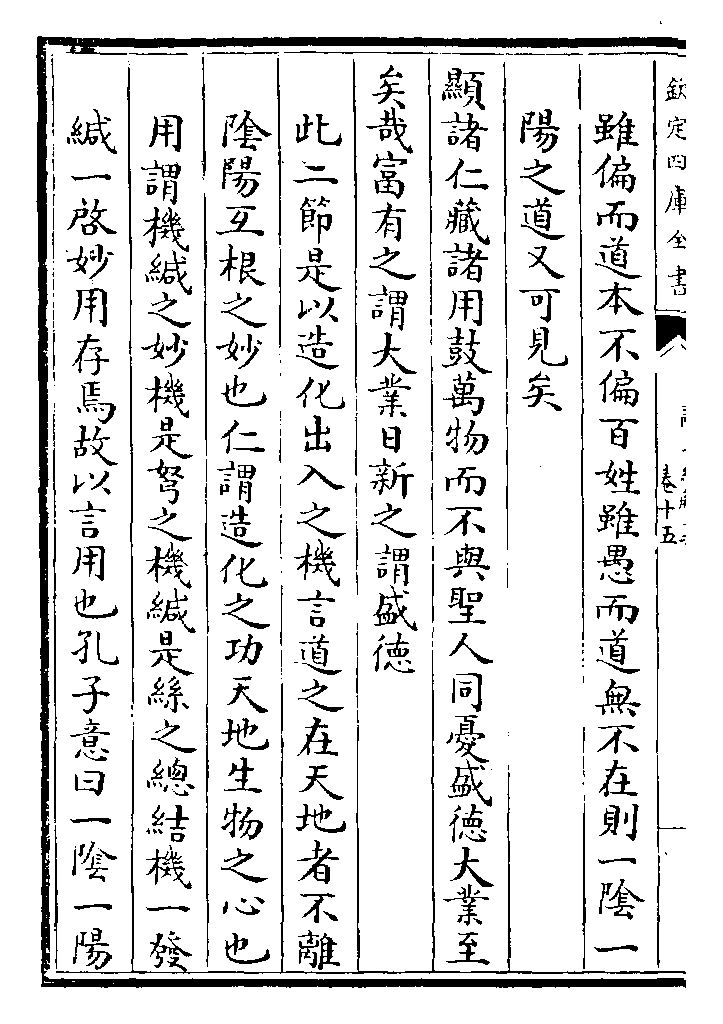 欽定四庫全書
卷十五
雖偏而道本不偏百姓雖愚而道無不在則一陰一
陽之道又可見矣
顯諸仁藏諸用鼓萬物而不與聖人同憂盛德大業至
矣哉富有之謂大業日新之謂盛德
此二節是以造化出入之機言道之在天地者不離
陰陽互根之妙也仁謂造化之功天地生物之心也
用謂機緘之妙機是弩之機緘是絲之總結機一發
緘一啓妙用存焉故以言用也孔子意曰一陰一陽